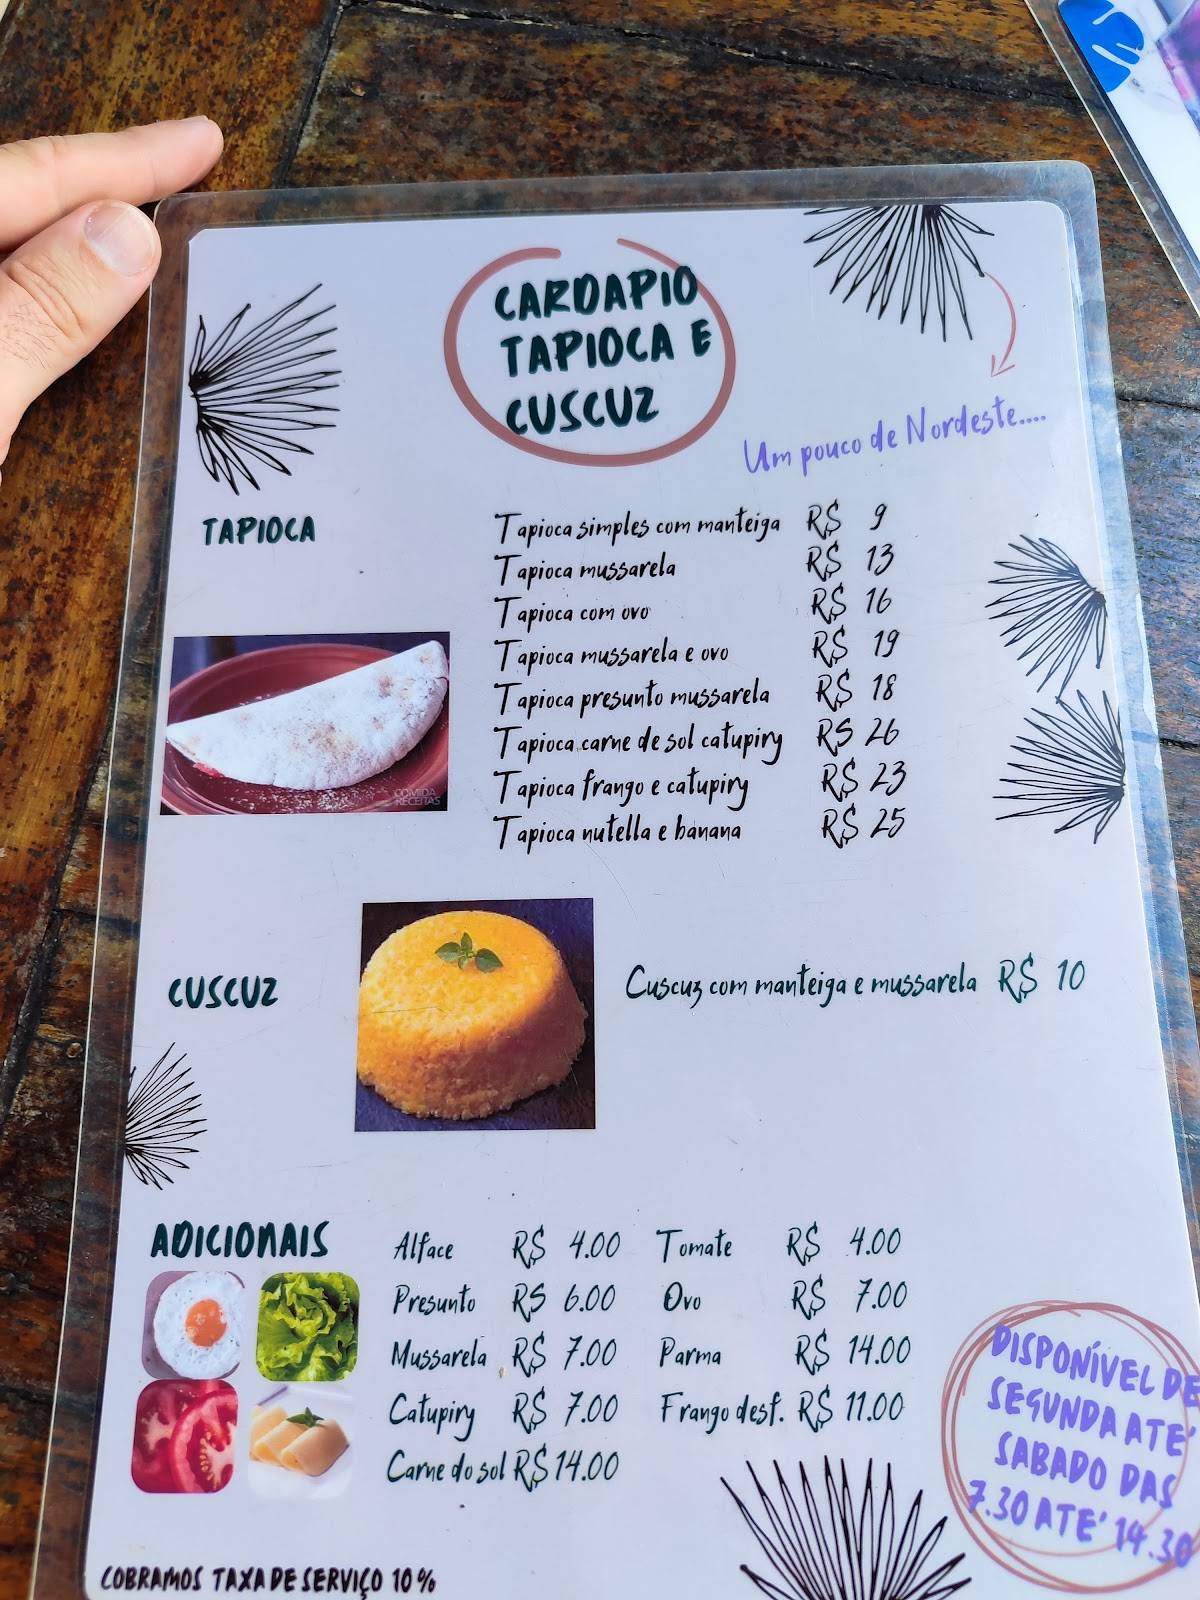 CARDAPIO
TAPIOCA E
CUSCUZ
Um pouco de Nordeste....
TAPIOCA
Tapioca simples com manteiga R$ 9
Tapioca mussarela R$ 13
Tapioca com ovo R$ 16
Tapioca mussarela e ovo R$ 19
Tapioca presunto mussarela R$ 18
Tapioca carne de sol catupiry RS 26
Tapioca frango e catupiry R$ 23
Tapioca nutella e banana R$ 25
COMIDA
RECEITAS
CUSCUZ
Cuscuz com manteiga e mussarela R$ 10
ADICIONAIS
Alface R$ 4.00 Tomate R$ 4.00
Presunto RS 6.00 Ovo R$ 7.00
Mussarela R$ 7.00 Parma R$ 14.00
Catupiry R$ 7.00 Frango desf. R$ 11.00
Carne do sol R$ 14.00
DISPONÍVEL DE
SEGUNDA ATE'
SABADO DAS
7.30 ATE' 14.30
COBRAMOS TAXA DE SERVIÇO 10%